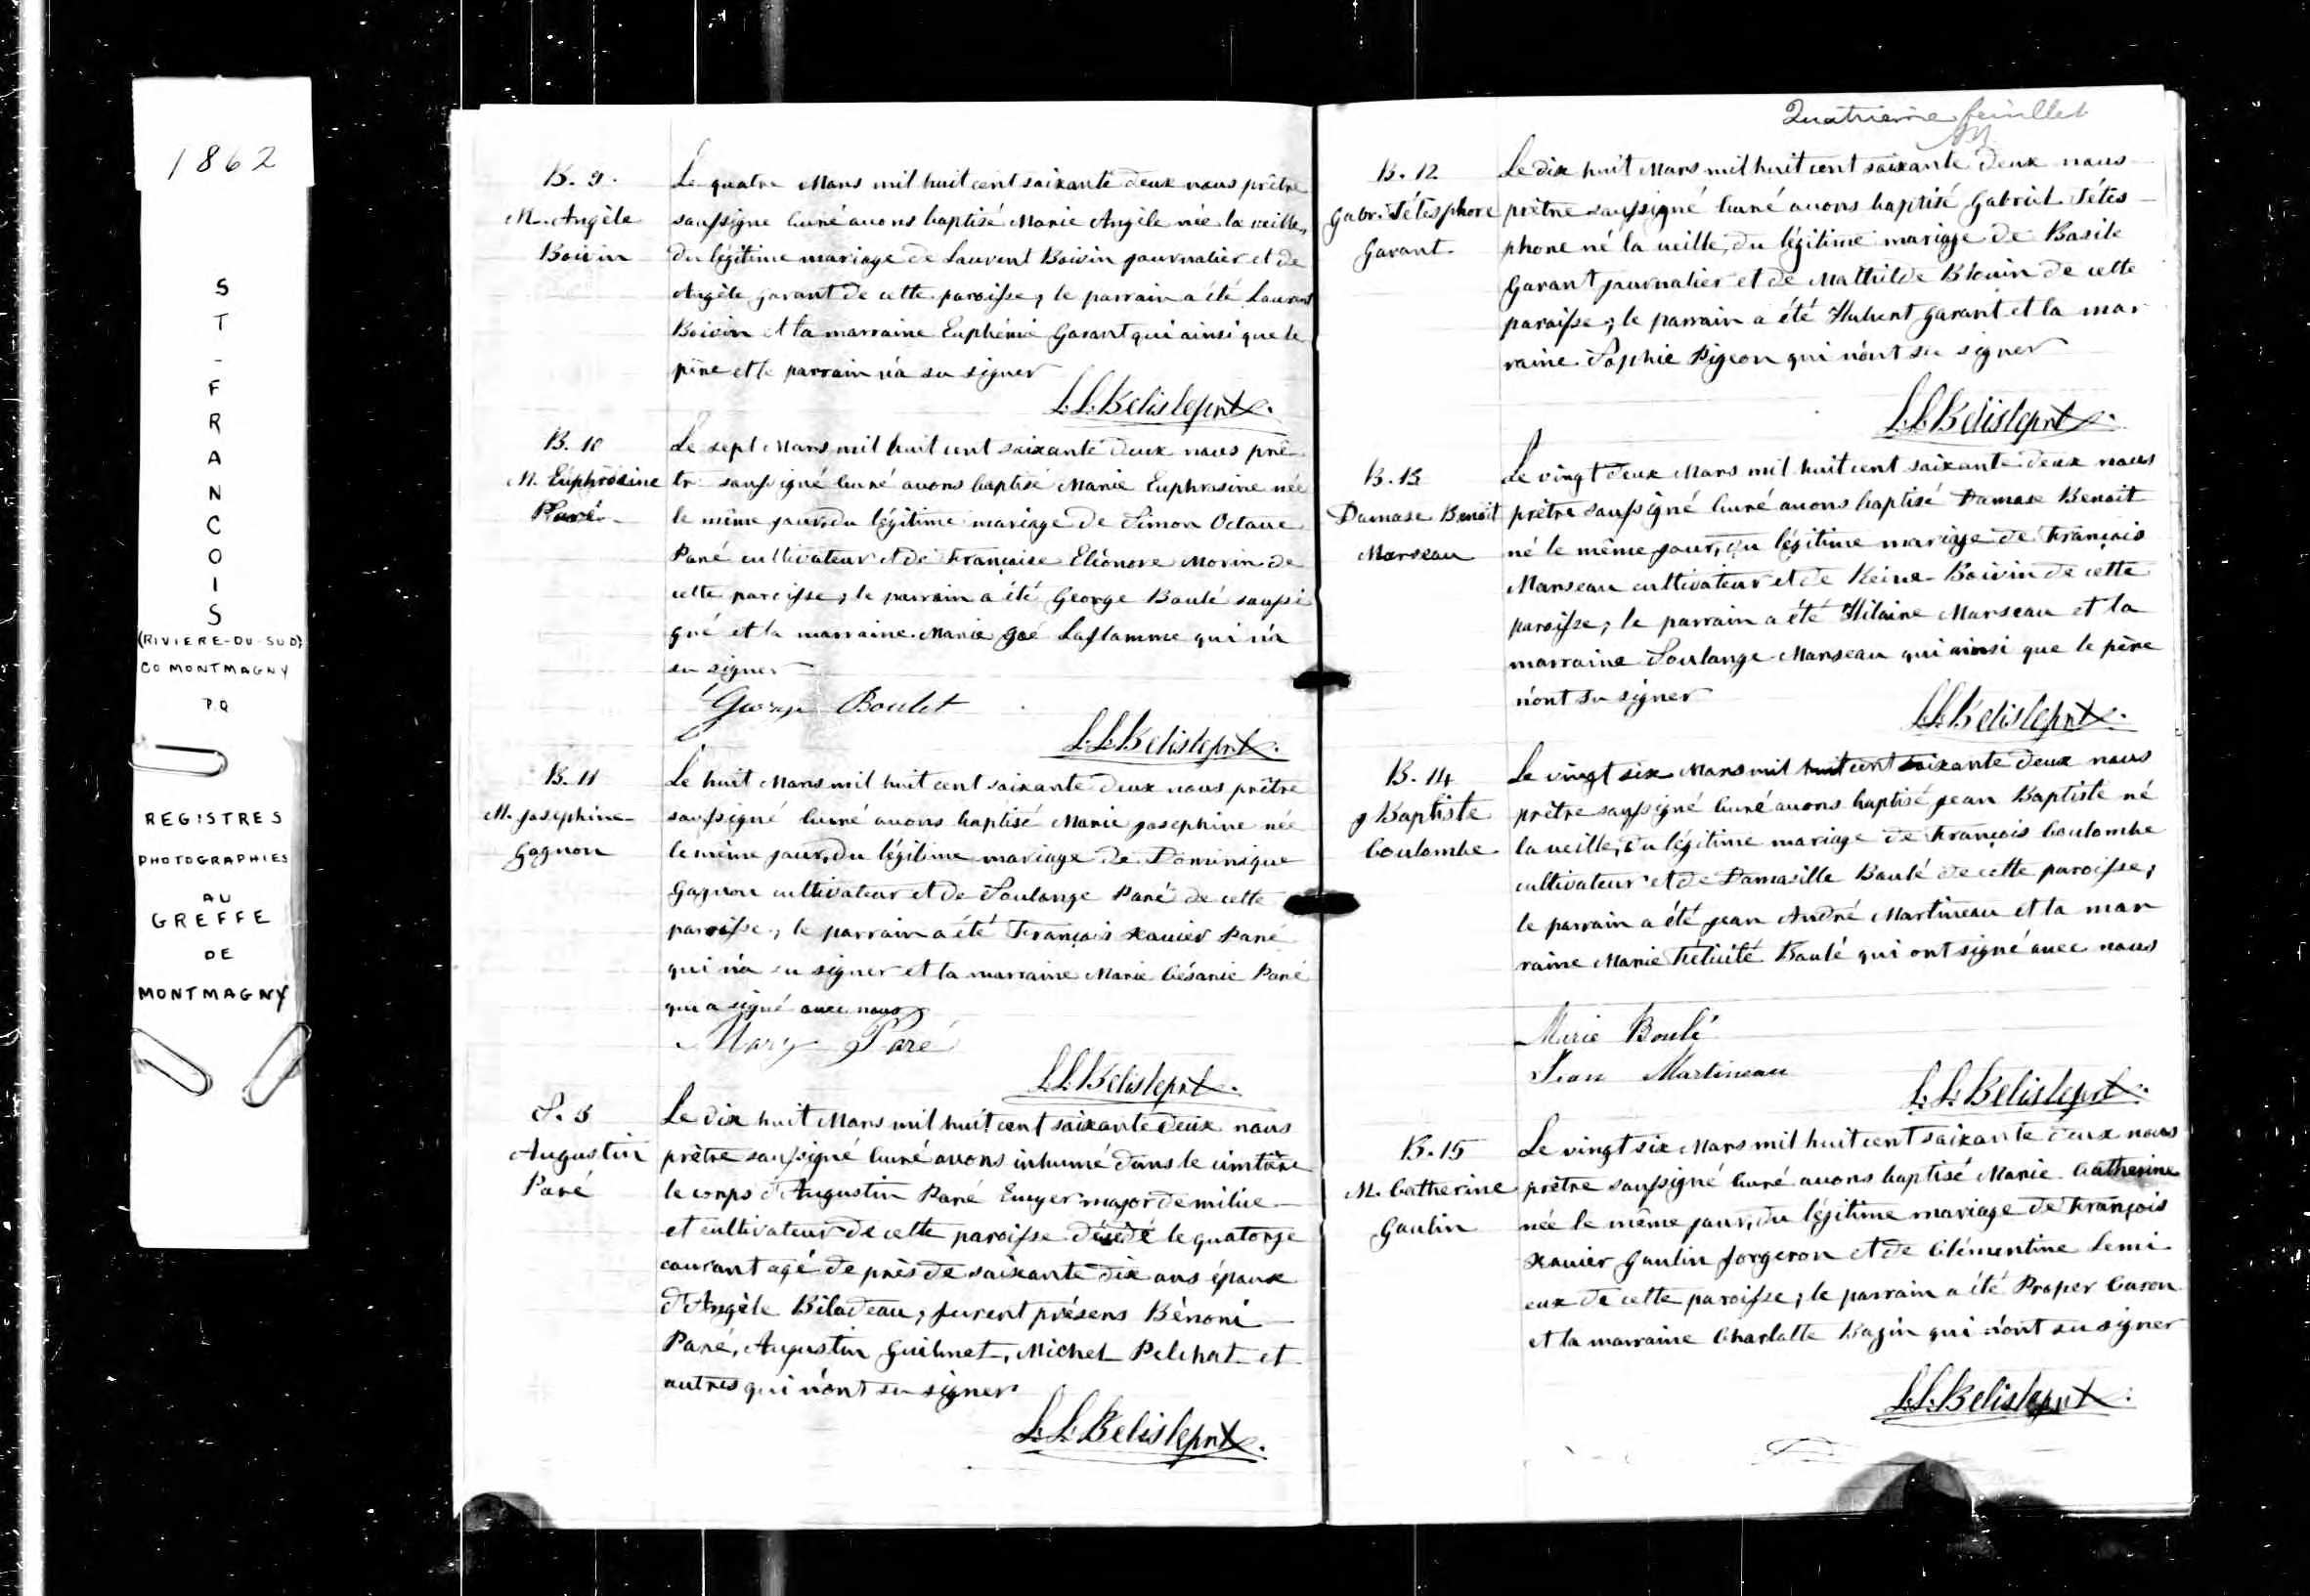 1862
S
T
-
F
R
A
N
C
O
I
S
(RIVIERE-DU-SUD)
CO MONTMAGNY
P.Q
REGISTRES
PHOTOGRAPHIES
AU
GREFFE
DE
MONTMAGNY
B. 9.
M. Angèle
Boivin
Le quatre Mars mil huit cent soixante deux nous prêtre
soussigné curé avons baptisé Marie Angèle née la veille,
du légitime mariage de Laurent Boivin journalier et de
Angèle Garant de cette paroisse; le parrain a été Laurent
Boivin et la marraine Euphémie Garant qui ainsi que le
père et le parrain n'a su signer
L.L. Belisle ptre.
B. 10
M. Euphrosine
Paré
Le sept Mars mil huit cent soixante deux nous prê
tre soussigné curé avons baptisé Marie Euphrosine née
le même jour, du légitime mariage de Simon Octave
Paré cultivateur et de Françoise Eléonore Morin de
cette paroisse; le parrain a été George Boulé soussi
gné et la marraine Marie Zoé Laflamme qui n'a
su signer
George Boulet
L.L. Belisle ptre.
B. 11
M. Josephine
Gagnon
Le huit Mars mil huit cent soixante deux nous prêtre
soussigné curé avons baptisé Marie Josephine née
le même jour, du légitime mariage de Dominique
Gagnon cultivateur et de Soulange Paré de cette
paroisse; le parrain a été François Xavier Paré
qui n'a su signer et la marraine Marie Césarie Paré
qui a signé avec nous
Mary Paré
L.L. Belisle ptre.
S. 3
Augustin
Paré
Le dix huit Mars mil huit cent soixante deux nous
prêtre soussigné curé avons inhumé dans le cimtière
le corps d'Augustin Paré Ecuyer major de milice
et cultivateur de cette paroisse décédé le quatorze
courant agé de près de soixante dix ans époux
d'Angèle Biladeau; furent présens Bénoni
Paré, Augustin Guilmet, Michel Pelchat et
autres qui n'ont su signer
L.L. Belisle ptre.
Quatrieme feuillet
B. 12
Gabr. Télesphore
Garant
Le dix huit Mars mil huit cent soixante deux nous
prêtre soussigné curé avons baptisé Gabriel Téles
phore né la veille, du légitime mariage de Basile
Garant journalier et de Mathilde Blouin de cette
paroisse; le parrain a été Hubert Garant et la mar
raine Sophie Pigeon qui n'ont su signer
L.L. Belisle ptre.
B. 13
Damase Benoit
Marseau
Le vingt deux Mars mil huit cent soixante deux nous
prêtre soussigné curé avons baptisé Damase Benoit
né le même jour, du légitime mariage de François
Marseau cultivateur et de Reine Boivin de cette
paroisse; le parrain a été Hilaire Marseau et la
marraine Soulange Marseau qui ainsi que le père
n'ont su signer
L.L. Belisle ptre.
B. 14
J Baptiste
Coulombe
Le vingt six Mars mil huit cent soixante deux nous
prêtre soussigné curé avons baptisé Jean Baptiste né
la veille, du légitime mariage de François Coulombe
cultivateur et de Damasille Boulé de cette paroisse;
le parrain a été Jean André Martineau et la mar
raine Marie Félicité Boulé qui ont signé avec nous
Marie Boulé
Jean Martineau
L.L. Belisle ptre.
B. 15
M. Catherine
Gaulin
Le vingt six Mars mil huit cent soixante deux nous
prêtre soussigné curé avons baptisé Marie Catherine
née le même jour, du légitime mariage de François
Xavier Gaulin forgeron et de Clémentine Lemi
eux de cette paroisse; le parrain a été Prosper Caron
et la marraine Charlotte Bazin qui n'ont su signer
L.L. Belisle ptre.